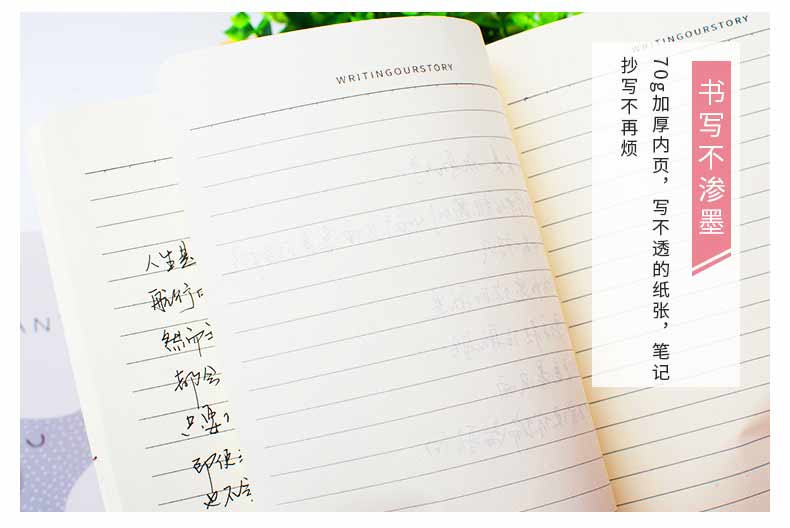 WRITINGOURSTORY
WRITINGOURSTORY
书写不渗墨
70g加厚内页，写不透的纸张，笔记
抄写不再烦
人生是
航行
然而
都会
只要
即便
也不会
AN